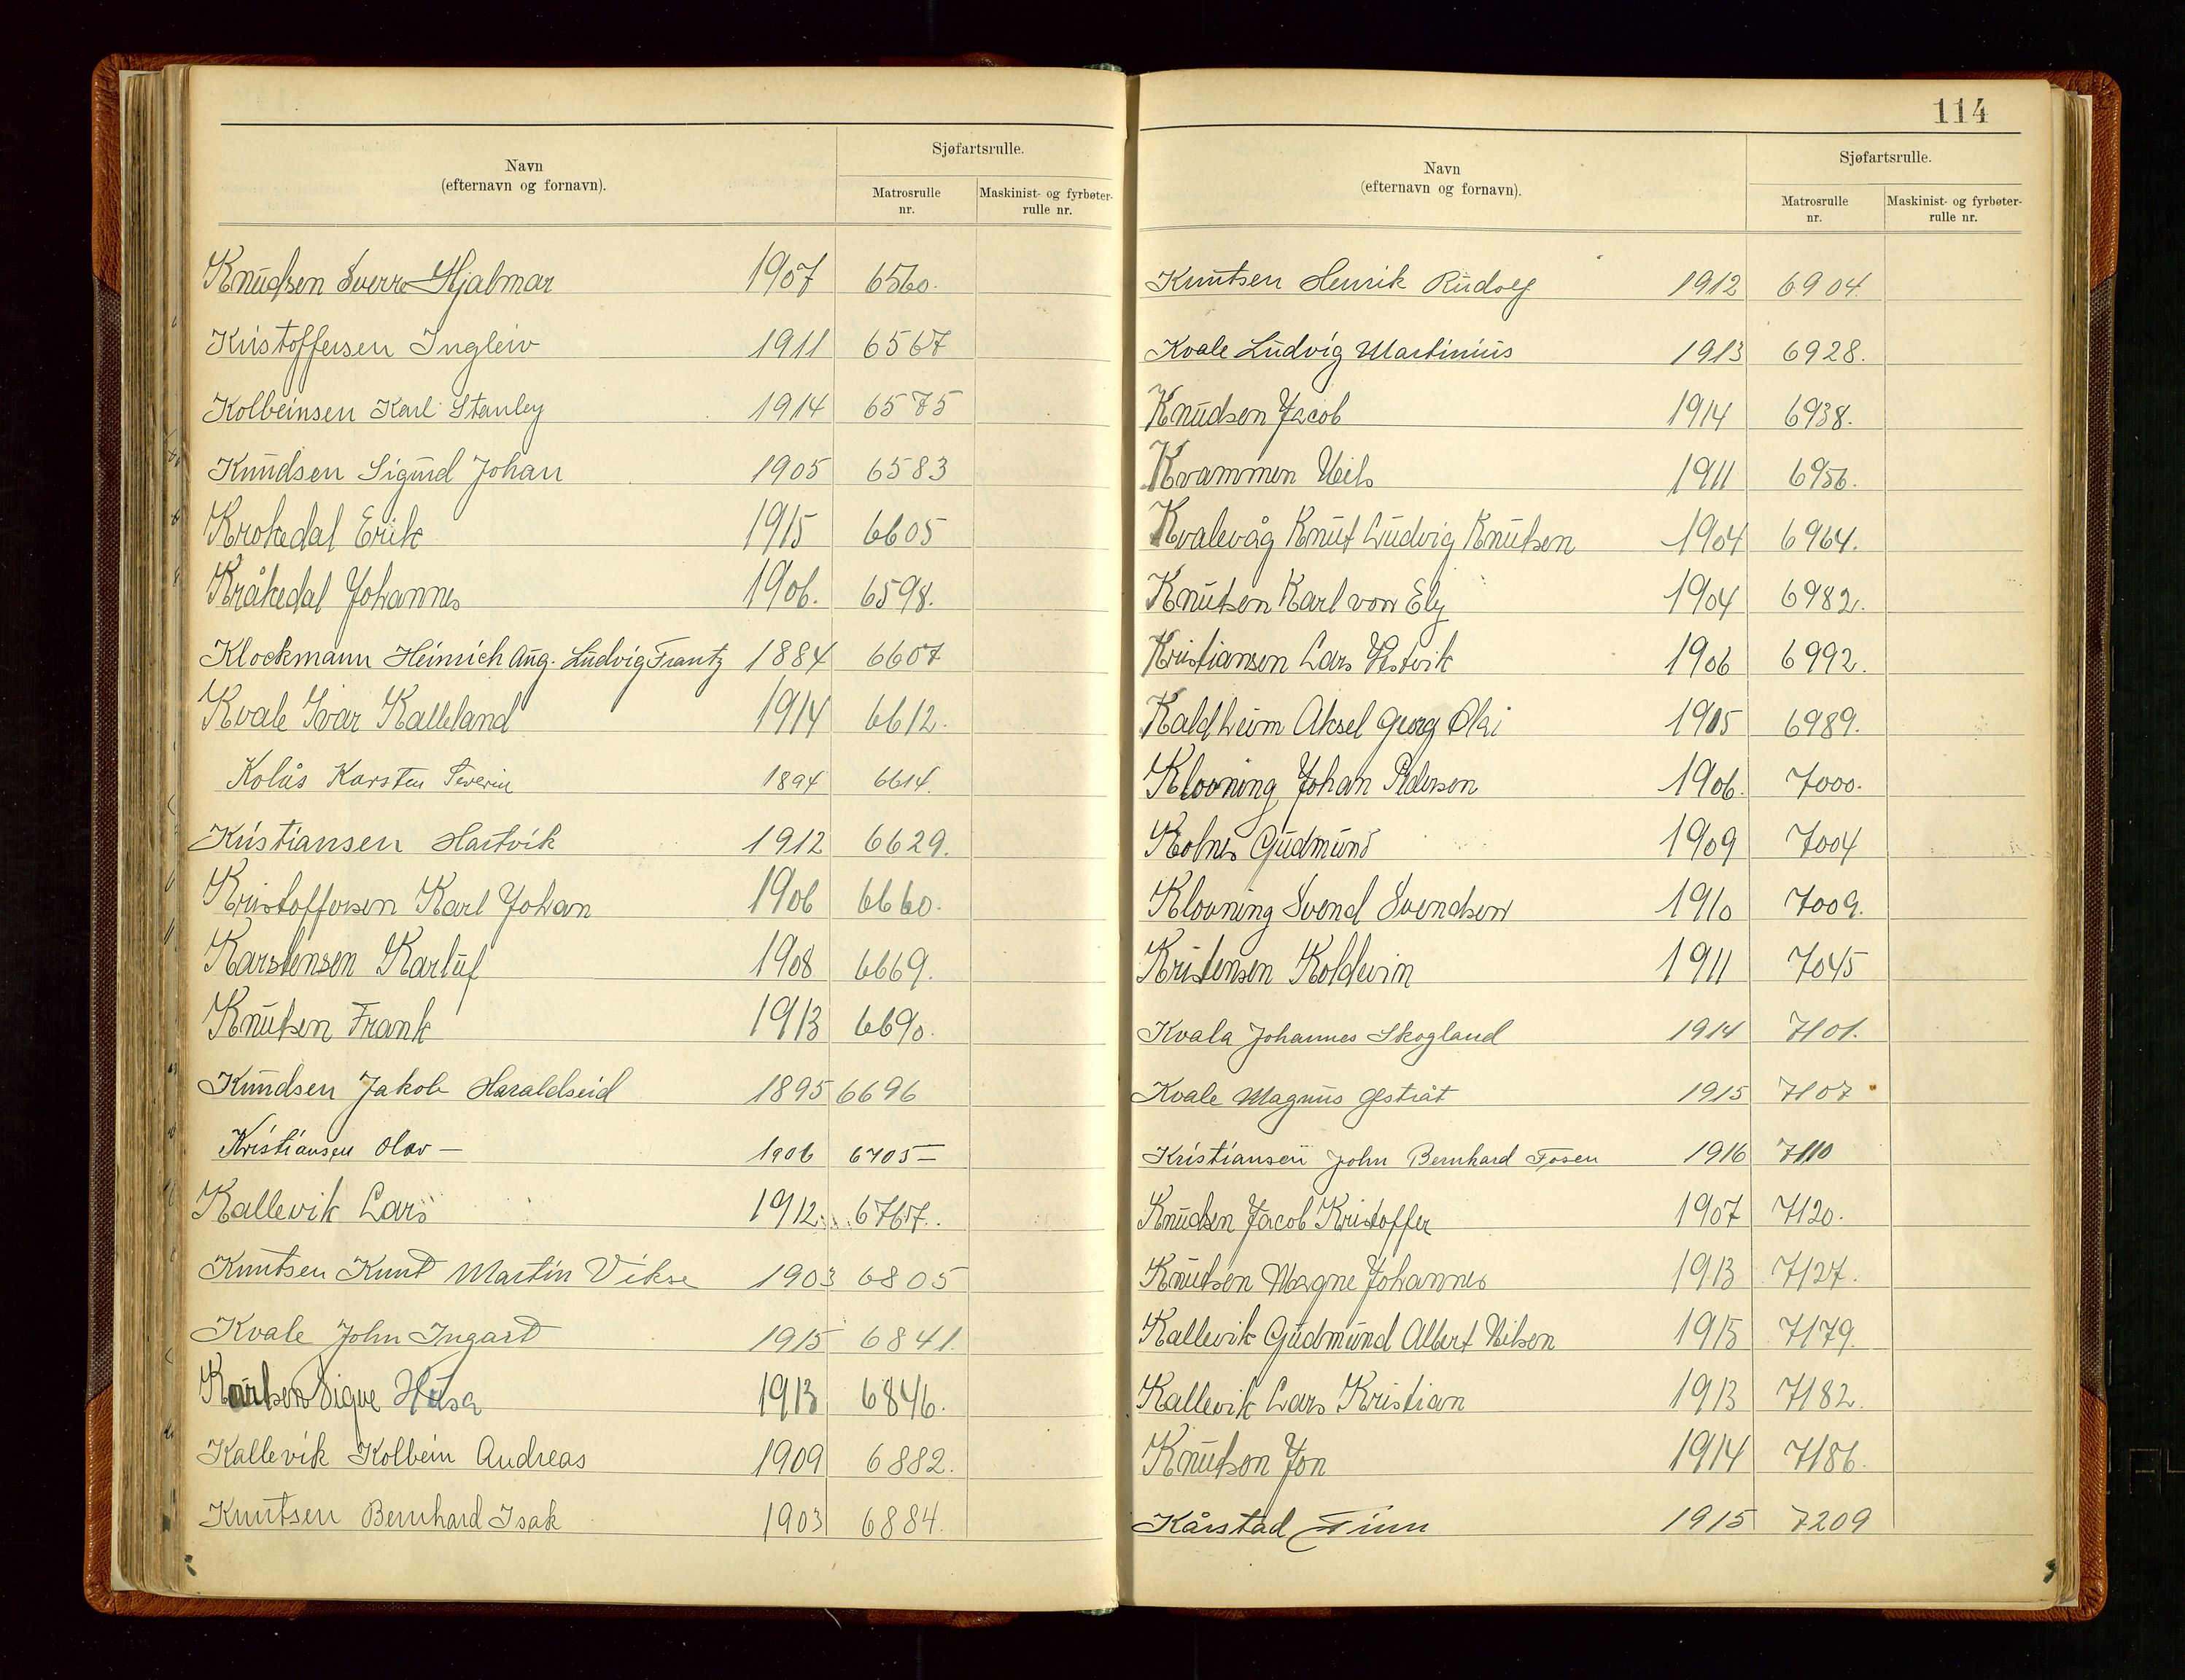 Navn
(efternavn og fornavn).
Sjøfartsrulle.
Matrosrulle
nr.
Maskinist- og fyrbøter-
rulle nr.
Knudsen Sverre Hjalmar 1907 6560.
Kristoffersen Ingleiv 1911 6567
Kolbeinsen Karl Stanley 1914 6575
Knudsen Sigurd Johan 1905 6583
Krokedal Erik 1915 6605
Kråkedal Johannes 1906. 6598.
Klockmann Heinrich Aug. Ludvig Frantz 1884 6607
Kvale Ivar Kalleland 1914 6612.
Kolås Karsten Severin 1894 6614.
Kristiansen Hartvik 1912 6629.
Kristoffersen Karl Johan 1906 6660.
Karstensen Karluf 1908 6669.
Knutsen Frank 1913 6690.
Knudsen Jakob Haraldseid 1895 6696
Kristiansen Olav — 1906 6705 —
Kallevik Lars 1912. 6767.
Knutsen Knut Martin Vikse 1903 6805
Kvale John Ingart 1915 6841.
Karlsen Sigve Husa 1913 6846.
Kallevik Kolbein Andreas 1909 6882.
Knutsen Bernhard Isak 1903 6884.
114
Navn
(efternavn og fornavn).
Sjøfartsrulle.
Matrosrulle
nr.
Maskinist- og fyrbøter-
rulle nr.
Knutsen Henrik Rudolf 1912 6904.
Kvale Ludvig Martinius 1913 6928.
Knudsen Jacob 1914 6938.
Kvammen Nils 1911 6956.
Kvalevåg Knut Ludvig Knutsen 1904 6964.
Knutsen Karl von Ely 1904 6982.
Kristiansen Lars 1906 6992.
Kaldheim Aksel Georg 1905 6989.
Klovning Johan Pedersen 1906. 7000.
Kolnes Gudmund 1909 7004
Klovning Svend Svendsen 1910 7009.
Kristensen Koldevin 1911 7045
Kvala Johannes Skogland 1914 7101.
Kvale Magnus 1915 7107
Kristiansen John Bernhard Fosen 1916 7110
Knudsen Jacob Kristoffer 1907 7120.
Knutsen Magne Johannes 1913 7127.
Kallevik Gudmund Albert Nilsen 1915 7179.
Kallevik Lars Kristian 1913 7182.
Knutson Jon 1914 7186.
Kårstad Finn 1915 7209